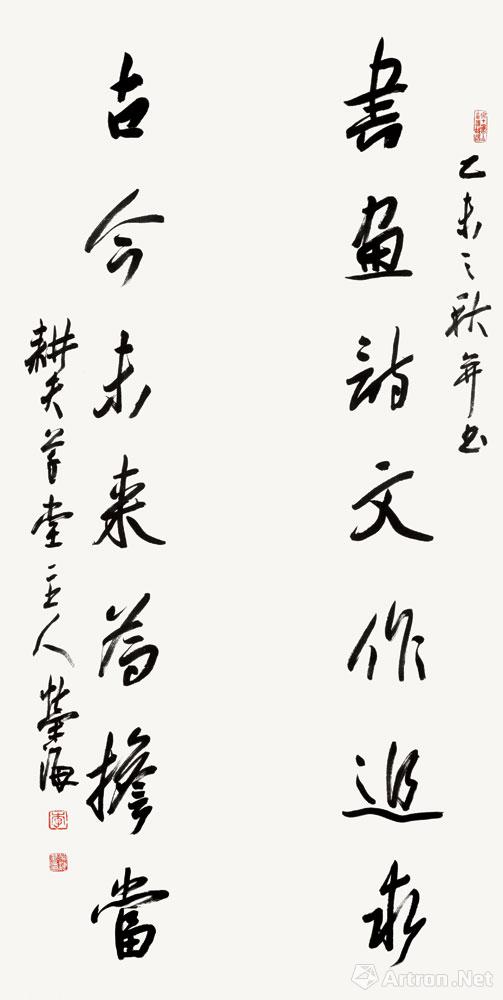 乙未之秋并书
書畫詩文作追求
古今未来為擔當
耕夫草堂主人榮海
Artron.Net